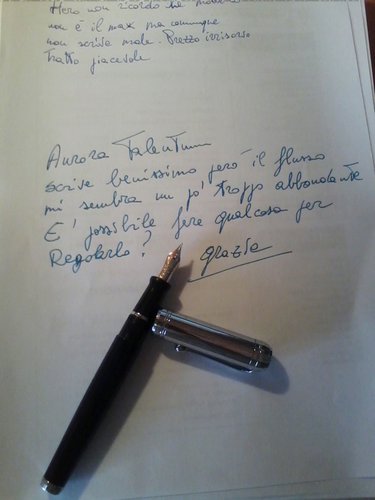 Hero non ricordo che modello
non è il max ma comunque
non scrive male. Prezzo irrisorio
Tratto piacevole
Aurora Talentum
scrive benissimo però il flusso
mi sembra un po' troppo abbondante
E' possibile fare qualcosa per
Regolarlo?
grazie